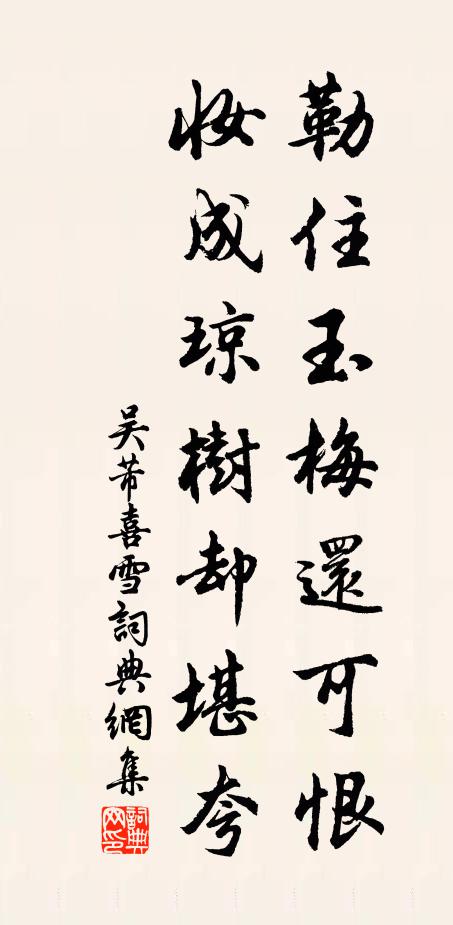 勒住玉梅還可恨
妝成琼樹却堪夸
吴芾喜雪詞典網集
詞典网印